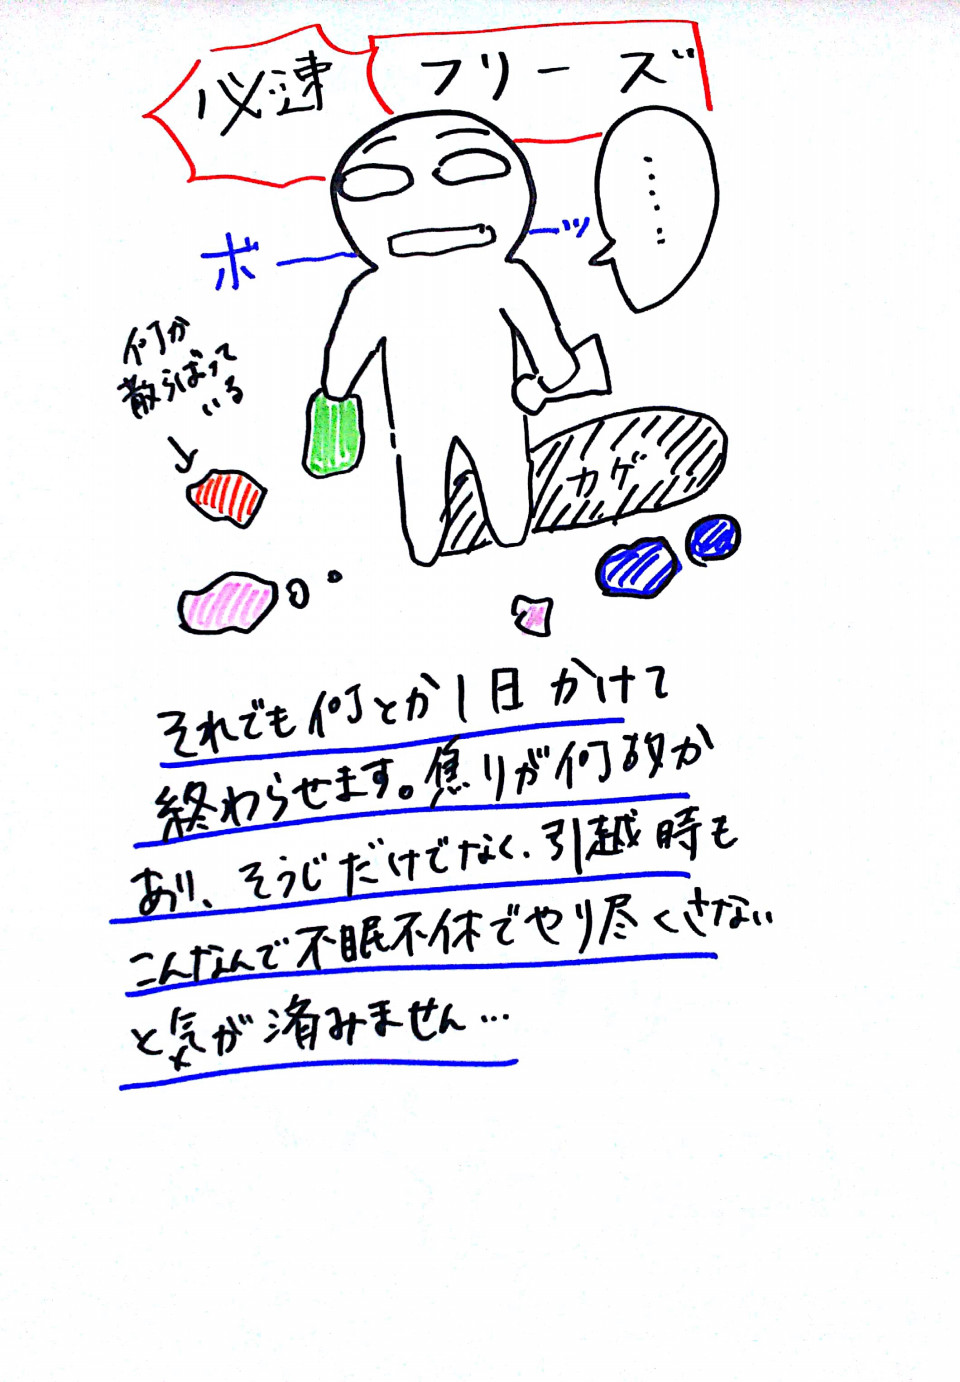 必速 フリーズ
……
ボーーッ
何か
散らばって
いる
カゲ
それでも何とか1日かけて
終わらせます。焦りが何故か
あり、そうじだけでなく、引越時も
こんなんで不眠不休でやり尽くさない
と気が済みません…